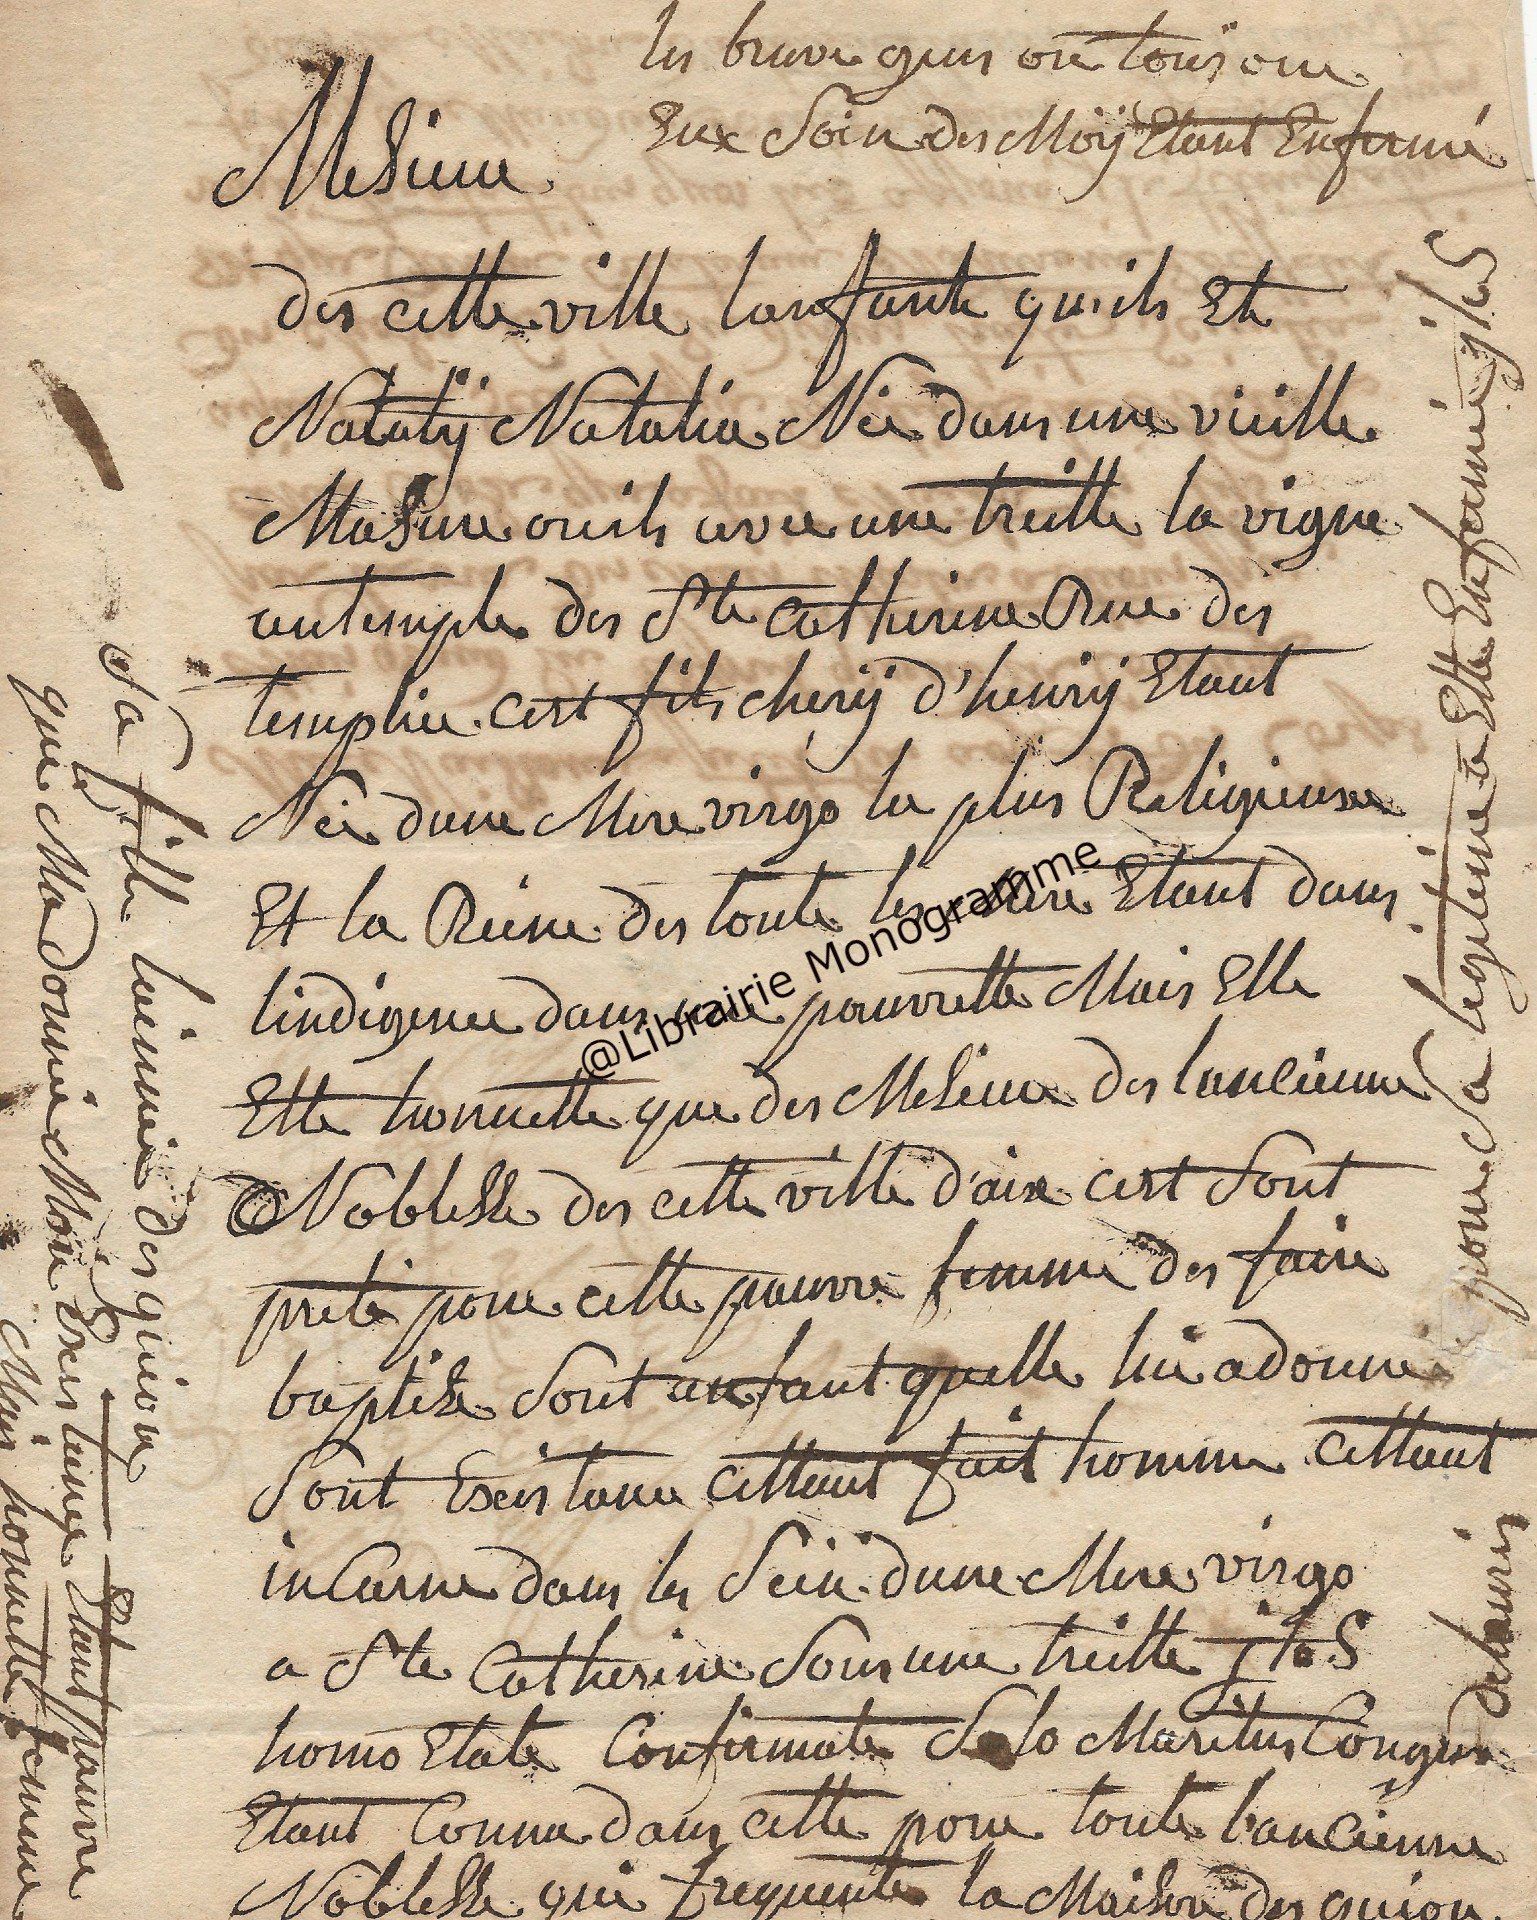 les brave gens on tous one
Eux Soin des Moÿ Etant Enfermé
MeSieur
des cette ville lanfante quils Et
Natalÿ Natalia Née dans une vieille
MaSure ou ils avee une treille la vigne
autemple des Ste Catherine Rue des
templie cest fils cherÿ d'henrÿ Etant
Née dune Mere virgo la plus Religieuse
Et la Reine des toute les Mere Etant dans
lindigence dans une pouvrette Mais Elle
Ette honnette que des MeSieur des lancienne
NobleSse des cette ville d'aix cest Sont
preté pour cette pauvre femme des faire
baptiSe Sont anfant quelle lui adonné
Sont Exsistance cettant fait homme cettant
inCarne dans les Sein dune Mere virgo
a Ste Catherine Sous une treille
homo Etate Confirmate Solo Maritus
Etant Connu dans cette pour toute lancienne
NobleSse qui frequente la MaiSon des quion
pour Sa legitime a Ette Enfermé
Sa fille laimée des quion
que Ma donnée Mon Exsistance Etant pauvre
Mais honnette femme
@Librairie Monogramme